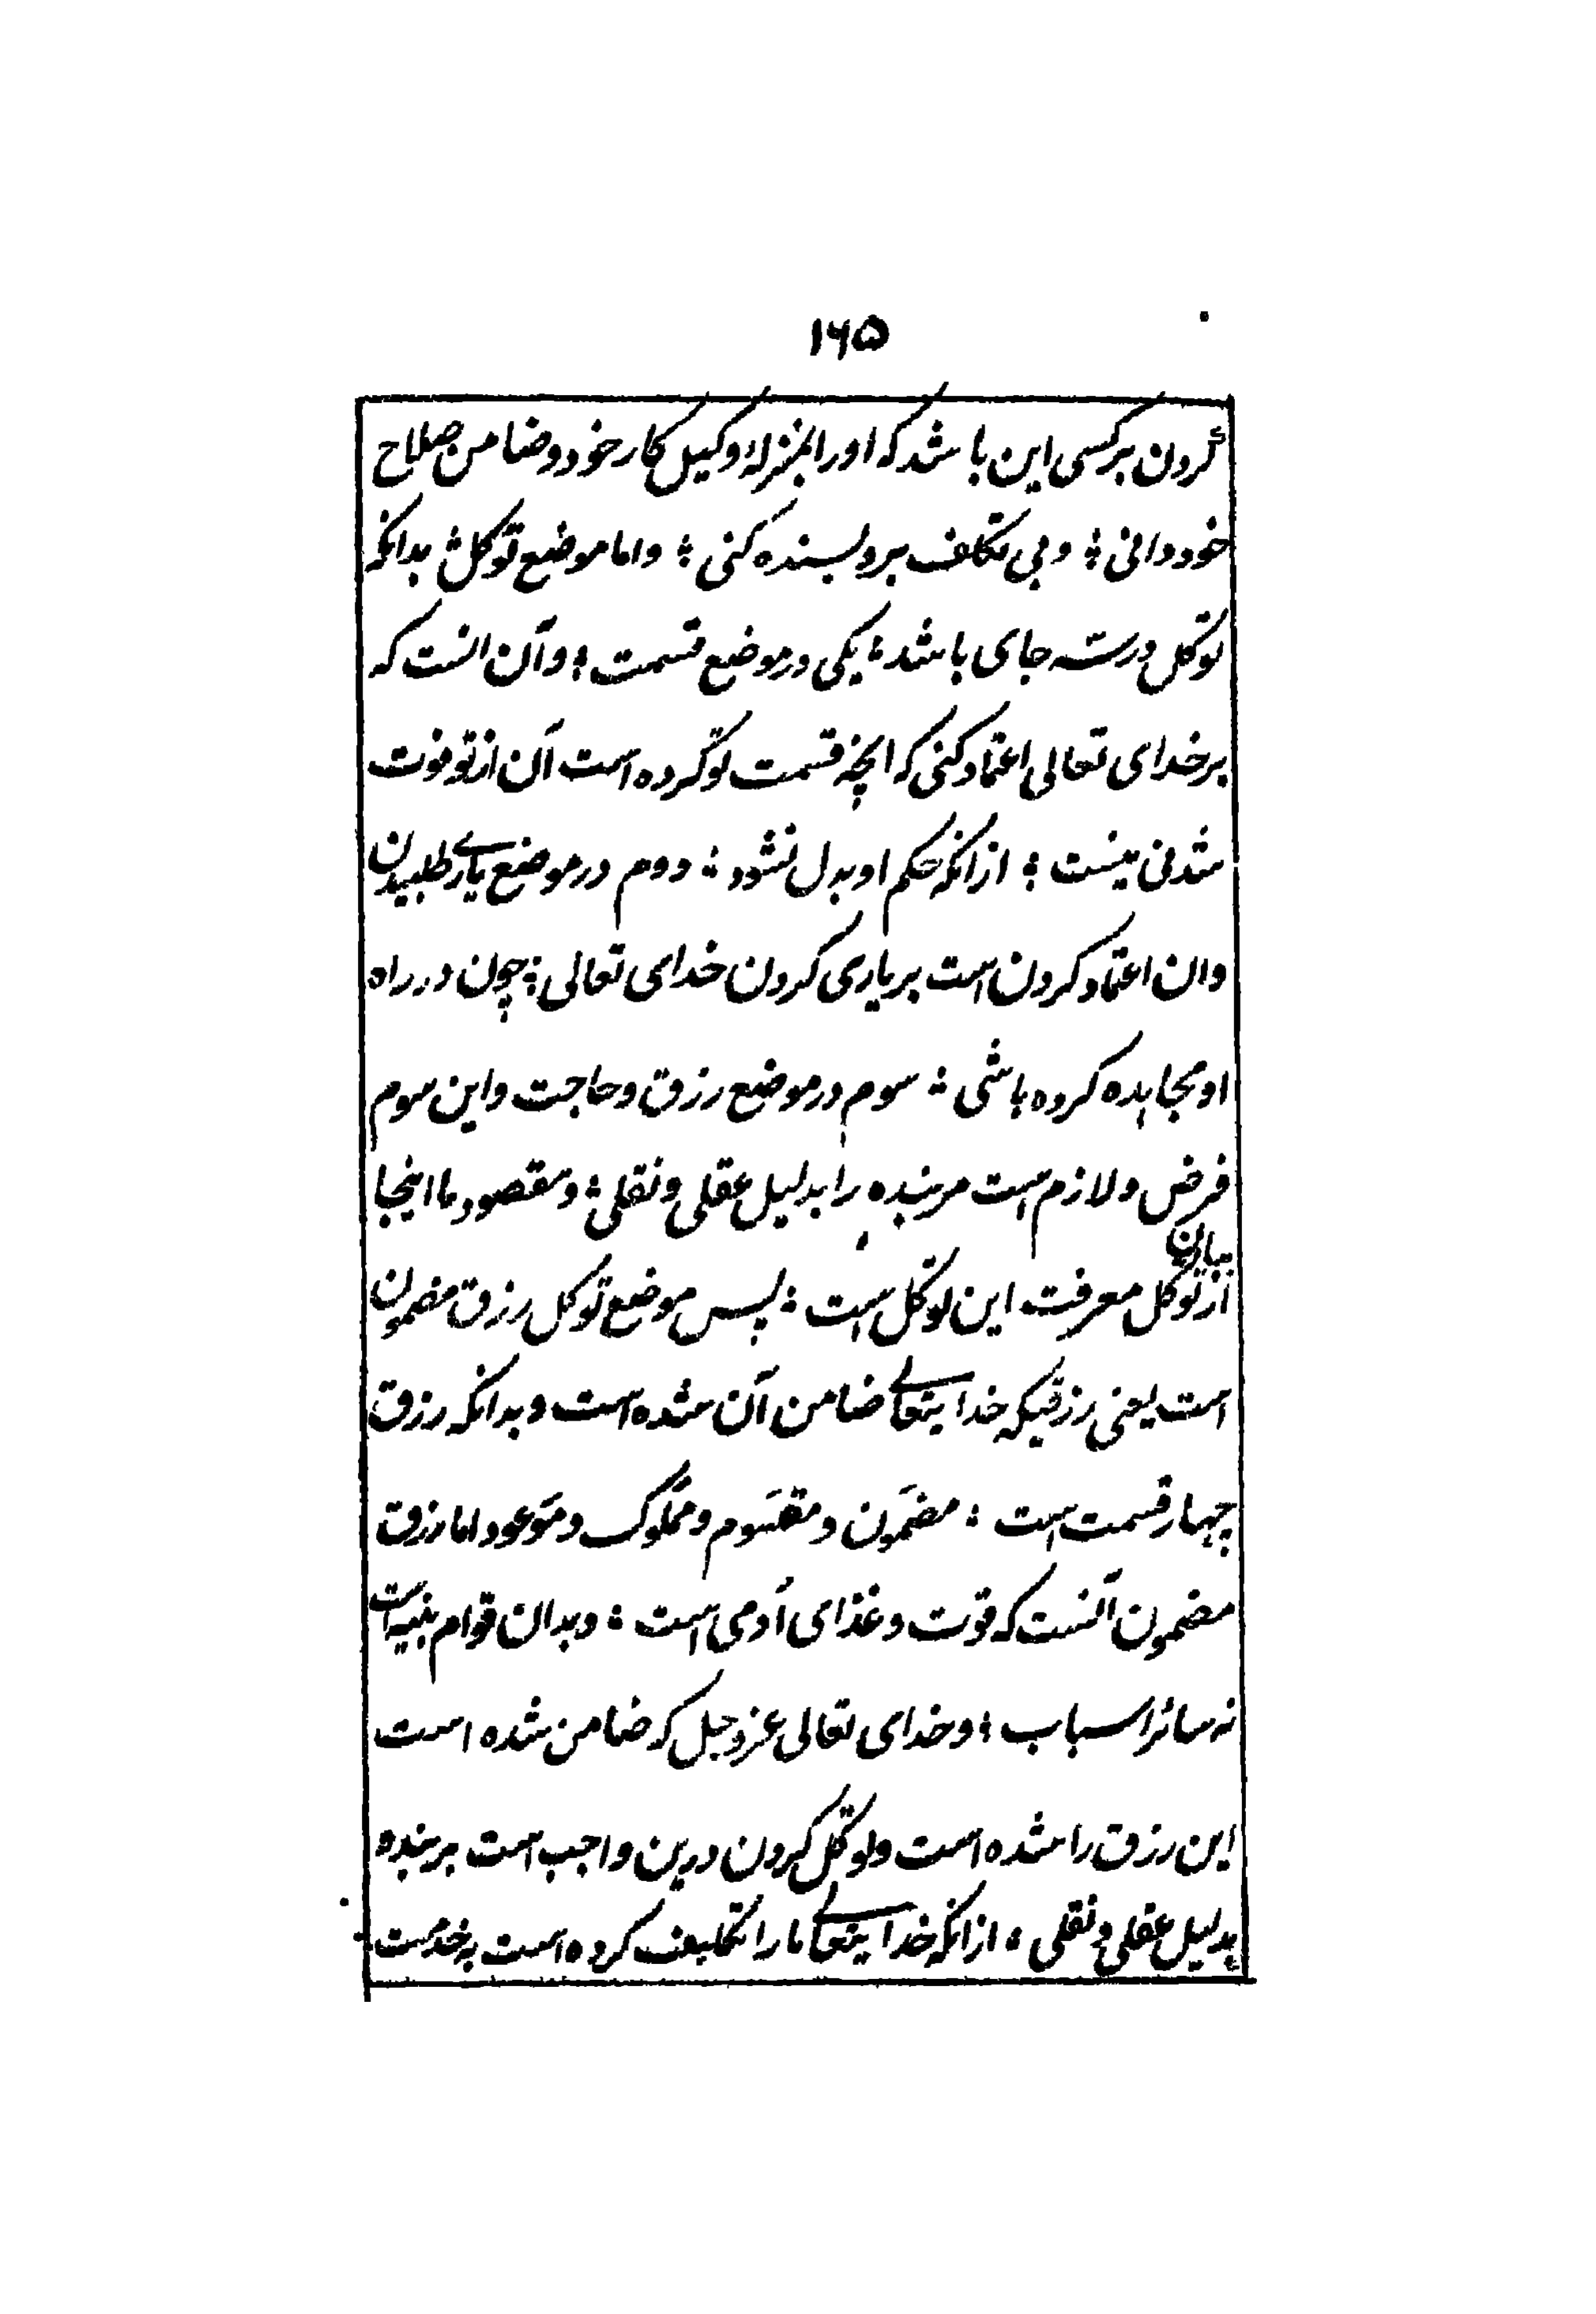 ۱۶۵
کردن بر کسی این باشد که او را بمنزلهٔ وکیل کار خود و ضامن صلاح
خود دانی ؛ و بی تکلف برو بسنده کنی ؛ و اما موضع توکل ؛ بدانکه
توکل در سه جای باشد ؛ یکی در موضع قسمت ؛ و آن انست که
بر خدای تعالی اعتماد کنی که انچه قسمت تو کرده است آن از تو فوت
شدنی نیست ؛ ازانکه حکم او بدل نشود ؛ دوم در موضع یاری طلبیدن
وان اعتماد کردن است بر یاری کردن خدای تعالی ؛ چون در راه
او مجاهده کرده باشی ؛ سوم در موضع رزق و حاجت و این سوم
فرض و لازم است مر بنده را بدلیل عقلی و نقلی ؛ و مقصود ما اینجا
بیان
از توکل معرفت این توکل است ؛ پس موضع توکل رزق مضمون
است یعنی رزقیکه خدایتعالی ضامن آن شده است و بدانکه رزق
چهار قسمت است ؛ مضمون و مقسوم و مملوک و موعود اما رزق
مضمون آنست که قوت و غذای آدمی است ؛ و بدان قوام بنیه است
نه سائر اسباب ؛ و خدای تعالی عز و جل که ضامن شده است
این رزق را شده است و توکل کردن درین واجب است بر بنده
بدلیل عقلی و نقلی ؛ ازانکه خدایتعالی ما را تکلیف کرده است بر خدمت